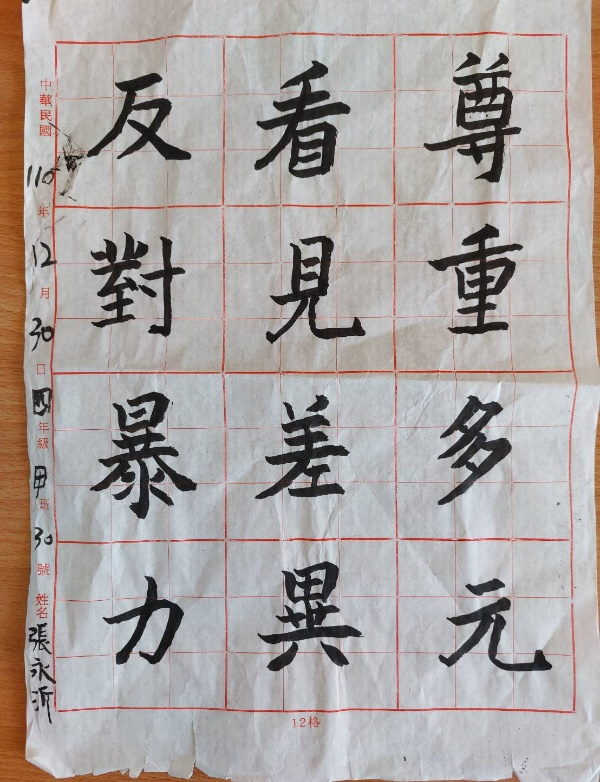 尊重多元
看見差異
反對暴力
中華民國110年12月30日四年級甲班30號 姓名張永沂
12格